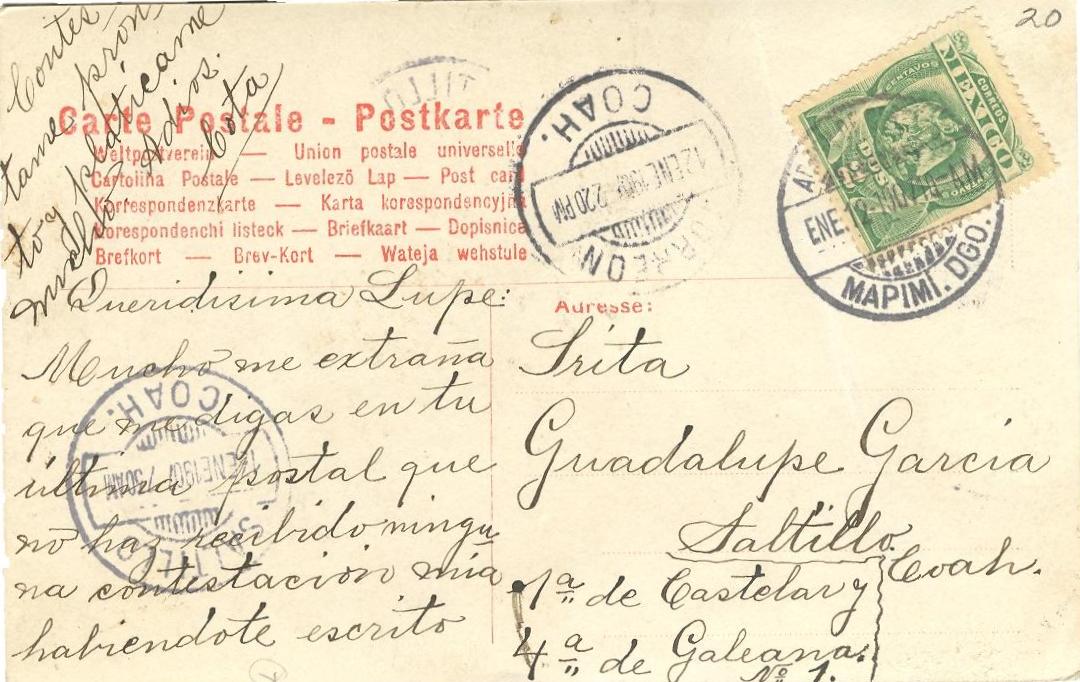 20
Contés
tame pron
to y platícame
mucho. Adios.
Cota
Carte Postale - Postkarte
Weltpostverein — Union postale universelle
Cartolina Postale — Levelezö Lap — Post card
Korrespondenzkarte — Karta korespondencyjna
Korespondenchi listeck — Briefkaart — Dopisnice
Brefkort — Brev-Kort — Wateja wehstule
COAH.
12 ENE 1907 2.20 PM
TORREON
CORREOS
MEXICO
DOS
CENTAVOS
ENE. 12 1907 11-AM
MAPIMI. DGO.
Queridisima Lupe:
Mucho me extraña
que me digas en tu
última postal que
no haz recibido ningu
na contestacion mia
habiendote escrito
COAH.
ENE 1907 7 30 AM
SALTILLO
Adresse:
Srita
Guadalupe Garcia
Saltillo.
Coah.
1ª de Castelar y
4ª de Galeana.
Nº 1.